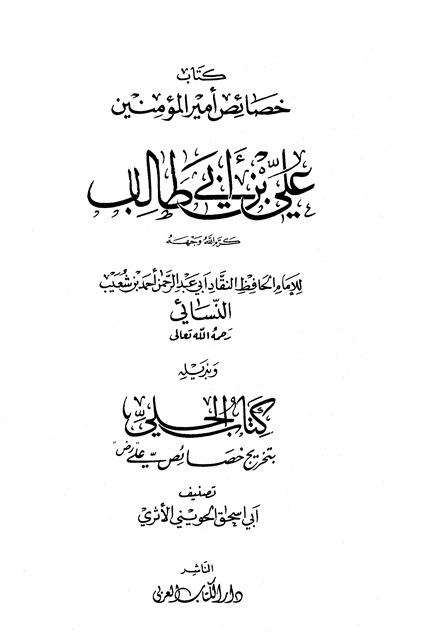 كتاب
خصائص أمير المؤمنين
علي بن أبي طالب
كرم الله وجهه
للإمام الحافظ النقاد أبي عبد الرحمن أحمد بن شعيب
النسائي
رحمه الله تعالى
وبذيله
كتاب الحلي
بتخريج خصائص علي رض
تصنيف
أبي إسحاق الحويني الأثري
الناشر
دار الكتاب العربي